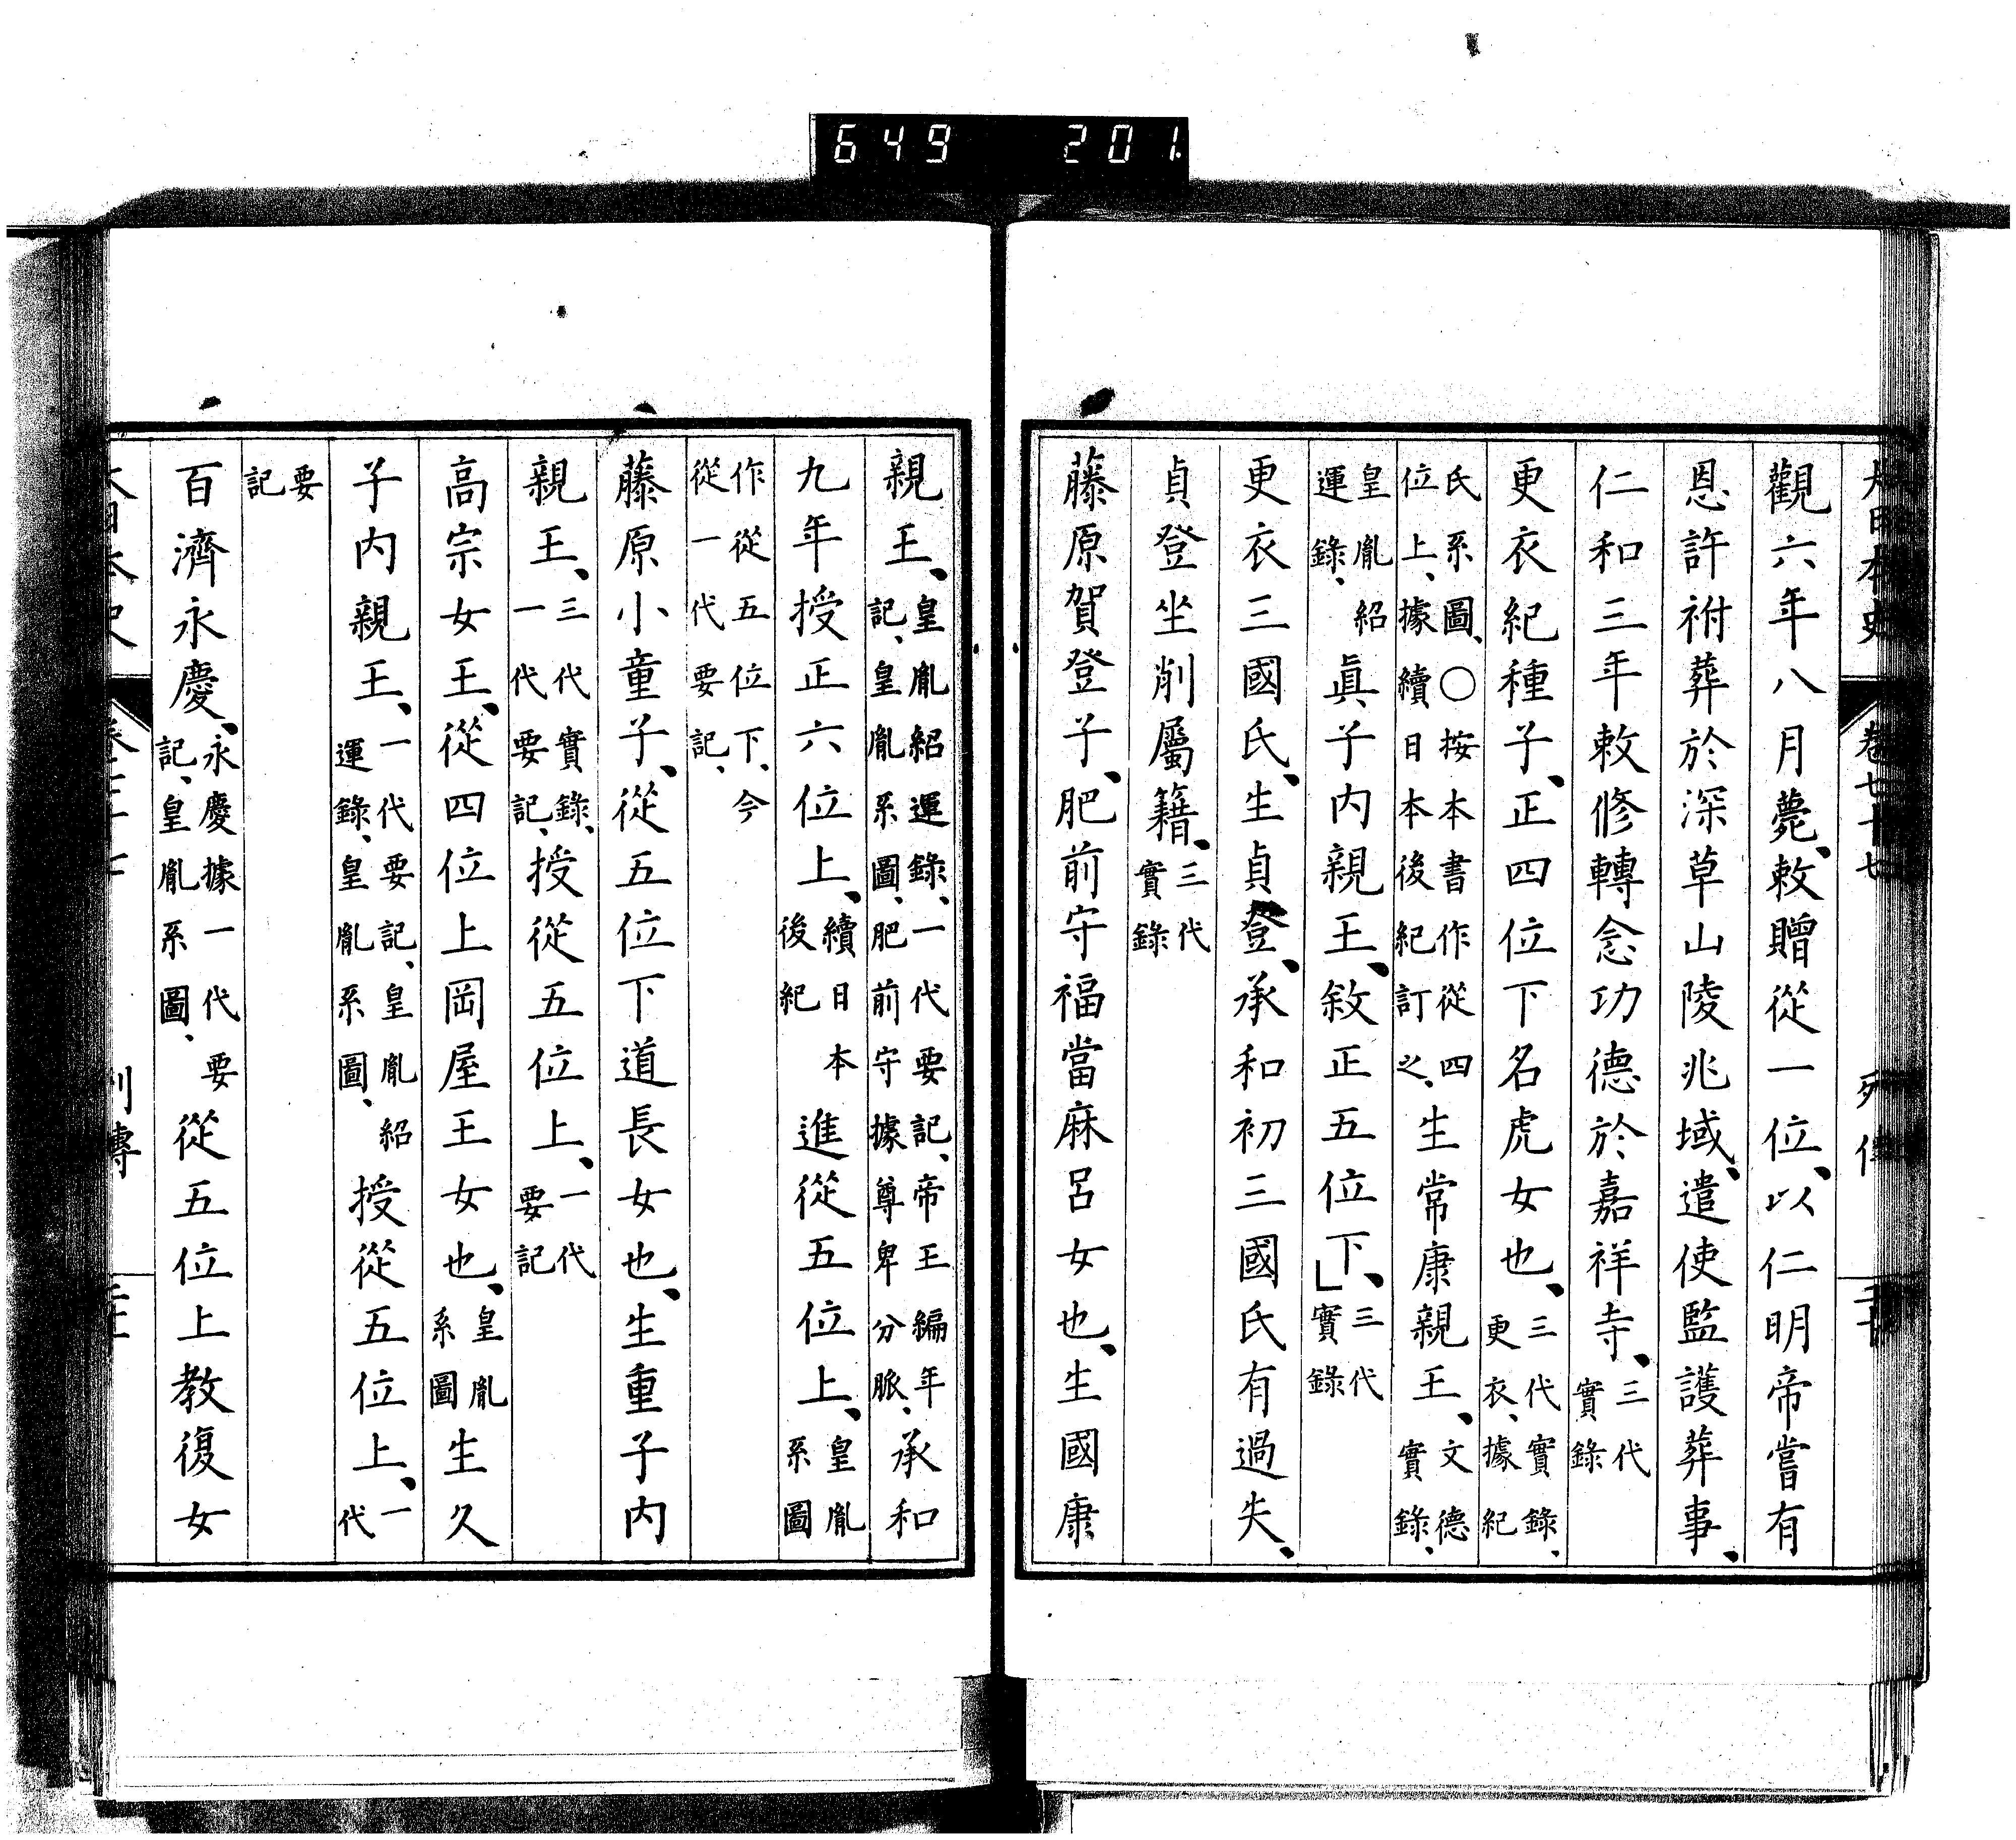 大日本史 卷七十七 列傳
觀六年八月薨、敕贈從一位、以仁明帝嘗有
恩許祔葬於深草山陵兆域、遣使監護葬事、
仁和三年敕修轉念功德於嘉祥寺、三代實錄
更衣紀種子、正四位下名虎女也、三代實錄、更衣、據紀
氏系圖、○按本書作從四位上、據續日本後紀訂之、生常康親王、文德實錄、
皇胤紹運錄、眞子內親王、敘正五位下、」三代實錄
更衣三國氏、生貞登、承和初三國氏有過失、
貞登坐削屬籍、三代實錄
藤原賀登子、肥前守福當麻呂女也、生國康
親王、皇胤紹運錄、一代要記、帝王編年記、皇胤系圖、肥前守據尊卑分脈、承和
九年授正六位上、續日本後紀進從五位上、皇胤系圖
作從五位下、今從一代要記、
藤原小童子、從五位下道長女也、生重子內
親王、三代實錄、一代要記、授從五位上、一代要記
高宗女王、從四位上岡屋王女也、皇胤系圖生久
子內親王、一代要記、皇胤紹運錄、皇胤系圖、授從五位上、一代
要記
百濟永慶、永慶據一代要記、皇胤系圖、從五位上教復女
649 201